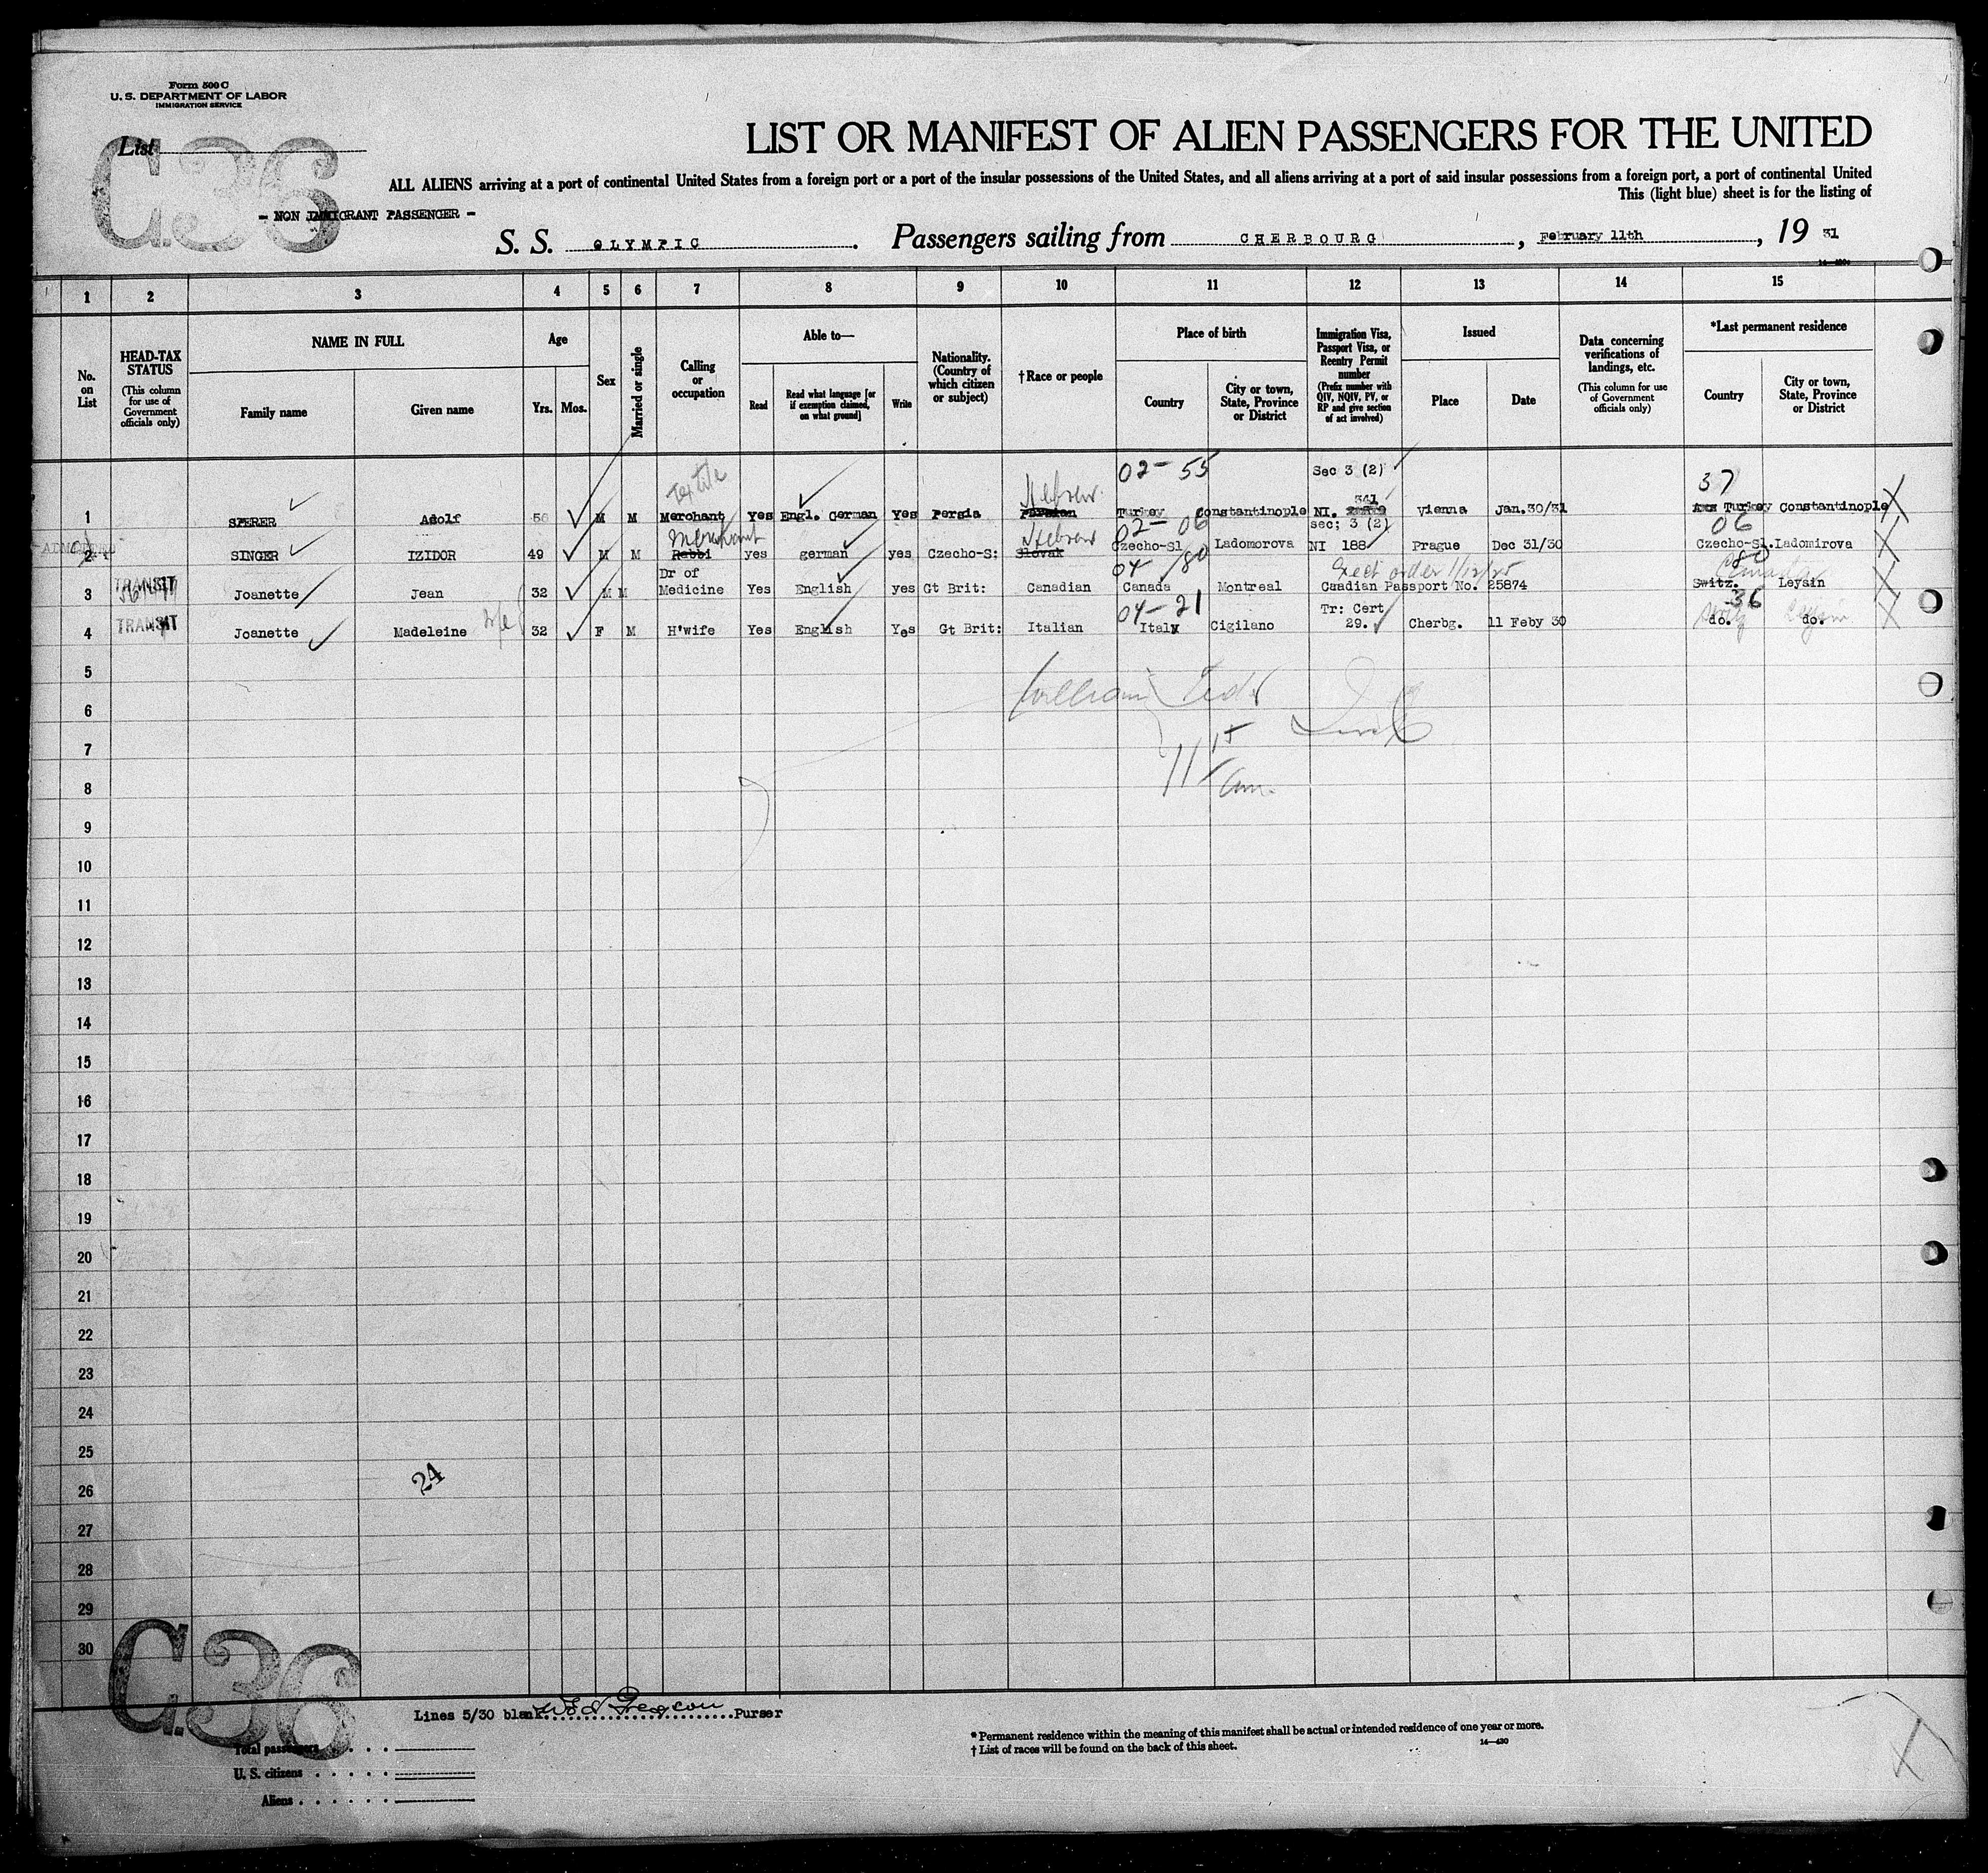 Form 500 C
U. S. DEPARTMENT OF LABOR
IMMIGRATION SERVICE
List
G36
LIST OR MANIFEST OF ALIEN PASSENGERS FOR THE UNITED
ALL ALIENS arriving at a port of continental United States from a foreign port or a port of the insular possessions of the United States, and all aliens arriving at a port of said insular possessions from a foreign port, a port of continental United
This (light blue) sheet is for the listing of
- NON IMMIGRANT PASSENGER -
S. S. OLYMPIC. Passengers sailing from CHERBOURG, February 11th, 19 31
1 2 3 4 5 6 7 8 9 10 11 12 13 14 15
No. on List
HEAD-TAX STATUS (This column for use of Government officials only)
NAME IN FULL
Family name Given name
Age
Yrs. Mos.
Sex
Married or single
Calling or occupation
Able to—
Read Read what language [or if exemption claimed, on what ground] Write
Nationality. (Country of which citizen or subject)
†Race or people
Place of birth
Country City or town, State, Province or District
Immigration Visa, Passport Visa, or Reentry Permit number (Prefix number with QIV, NQIV, PV, or RP and give section of act involved)
Issued
Place Date
Data concerning verifications of landings, etc. (This column for use of Government officials only)
*Last permanent residence
Country City or town, State, Province or District
Textile Hebrew 02-55 Sec 3 (2) 341 37
1 SPERER Adolf 56 M M Merchant Yes Engl. German Yes Persia Persian Turkey Constantinople NI. Vienna Jan.30/31 Turkey Constantinople
Merchant Hebrew 02-06 sec; 3 (2) 06
2 SINGER IZIDOR 49 M M Rabbi yes german yes Czecho-S: Slovak Czecho-Sl Ladomorova NI 188 Prague Dec 31/30 Czecho-Sl. Ladomirova
TRANSIT Dr of 04-80 Exect order 1/12/25 Canada
3 Joanette Jean 32 M M Medicine Yes English yes Gt Brit: Canadian Canada Montreal Canadian Passport No. 25874 Switz. Leysin
TRANSIT 04-21 Tr: Cert 36
4 Joanette Madeleine 32 F M H'wife Yes English Yes Gt Brit: Italian Italy Cigilano 29. Cherbg. 11 Feby 30 do. do.
5
6
7
8
9
10
11
12
13
14
15
16
17
18
19
20
21
22
23
24
25
24
26
27
28
29
30
G36
Lines 5/30 blank. Purser
Total passengers
U. S. citizens
Aliens
* Permanent residence within the meaning of this manifest shall be actual or intended residence of one year or more.
† List of races will be found on the back of this sheet.
14—430